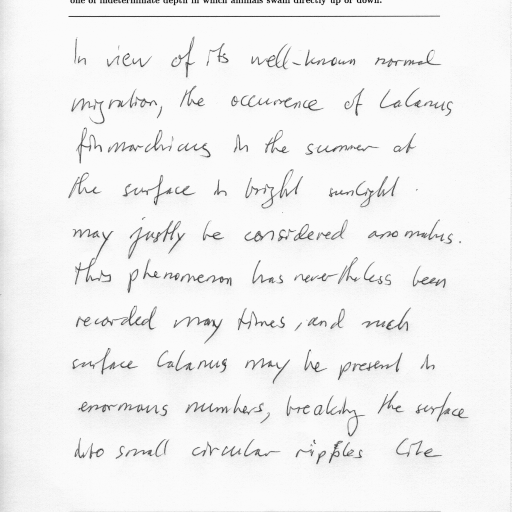 one of indeterminate depth in which animals swam directly up or down.
In view of its well-known normal
migration, the occurrence of Calanus
finmarchicus in the summer at
the surface in bright sunlight
may justly be considered anomalus.
This phenomenon has nevertheless been
recorded many times, and such
surface Calanus may be present in
enormous numbers, breaking the surface
into small circular ripples like